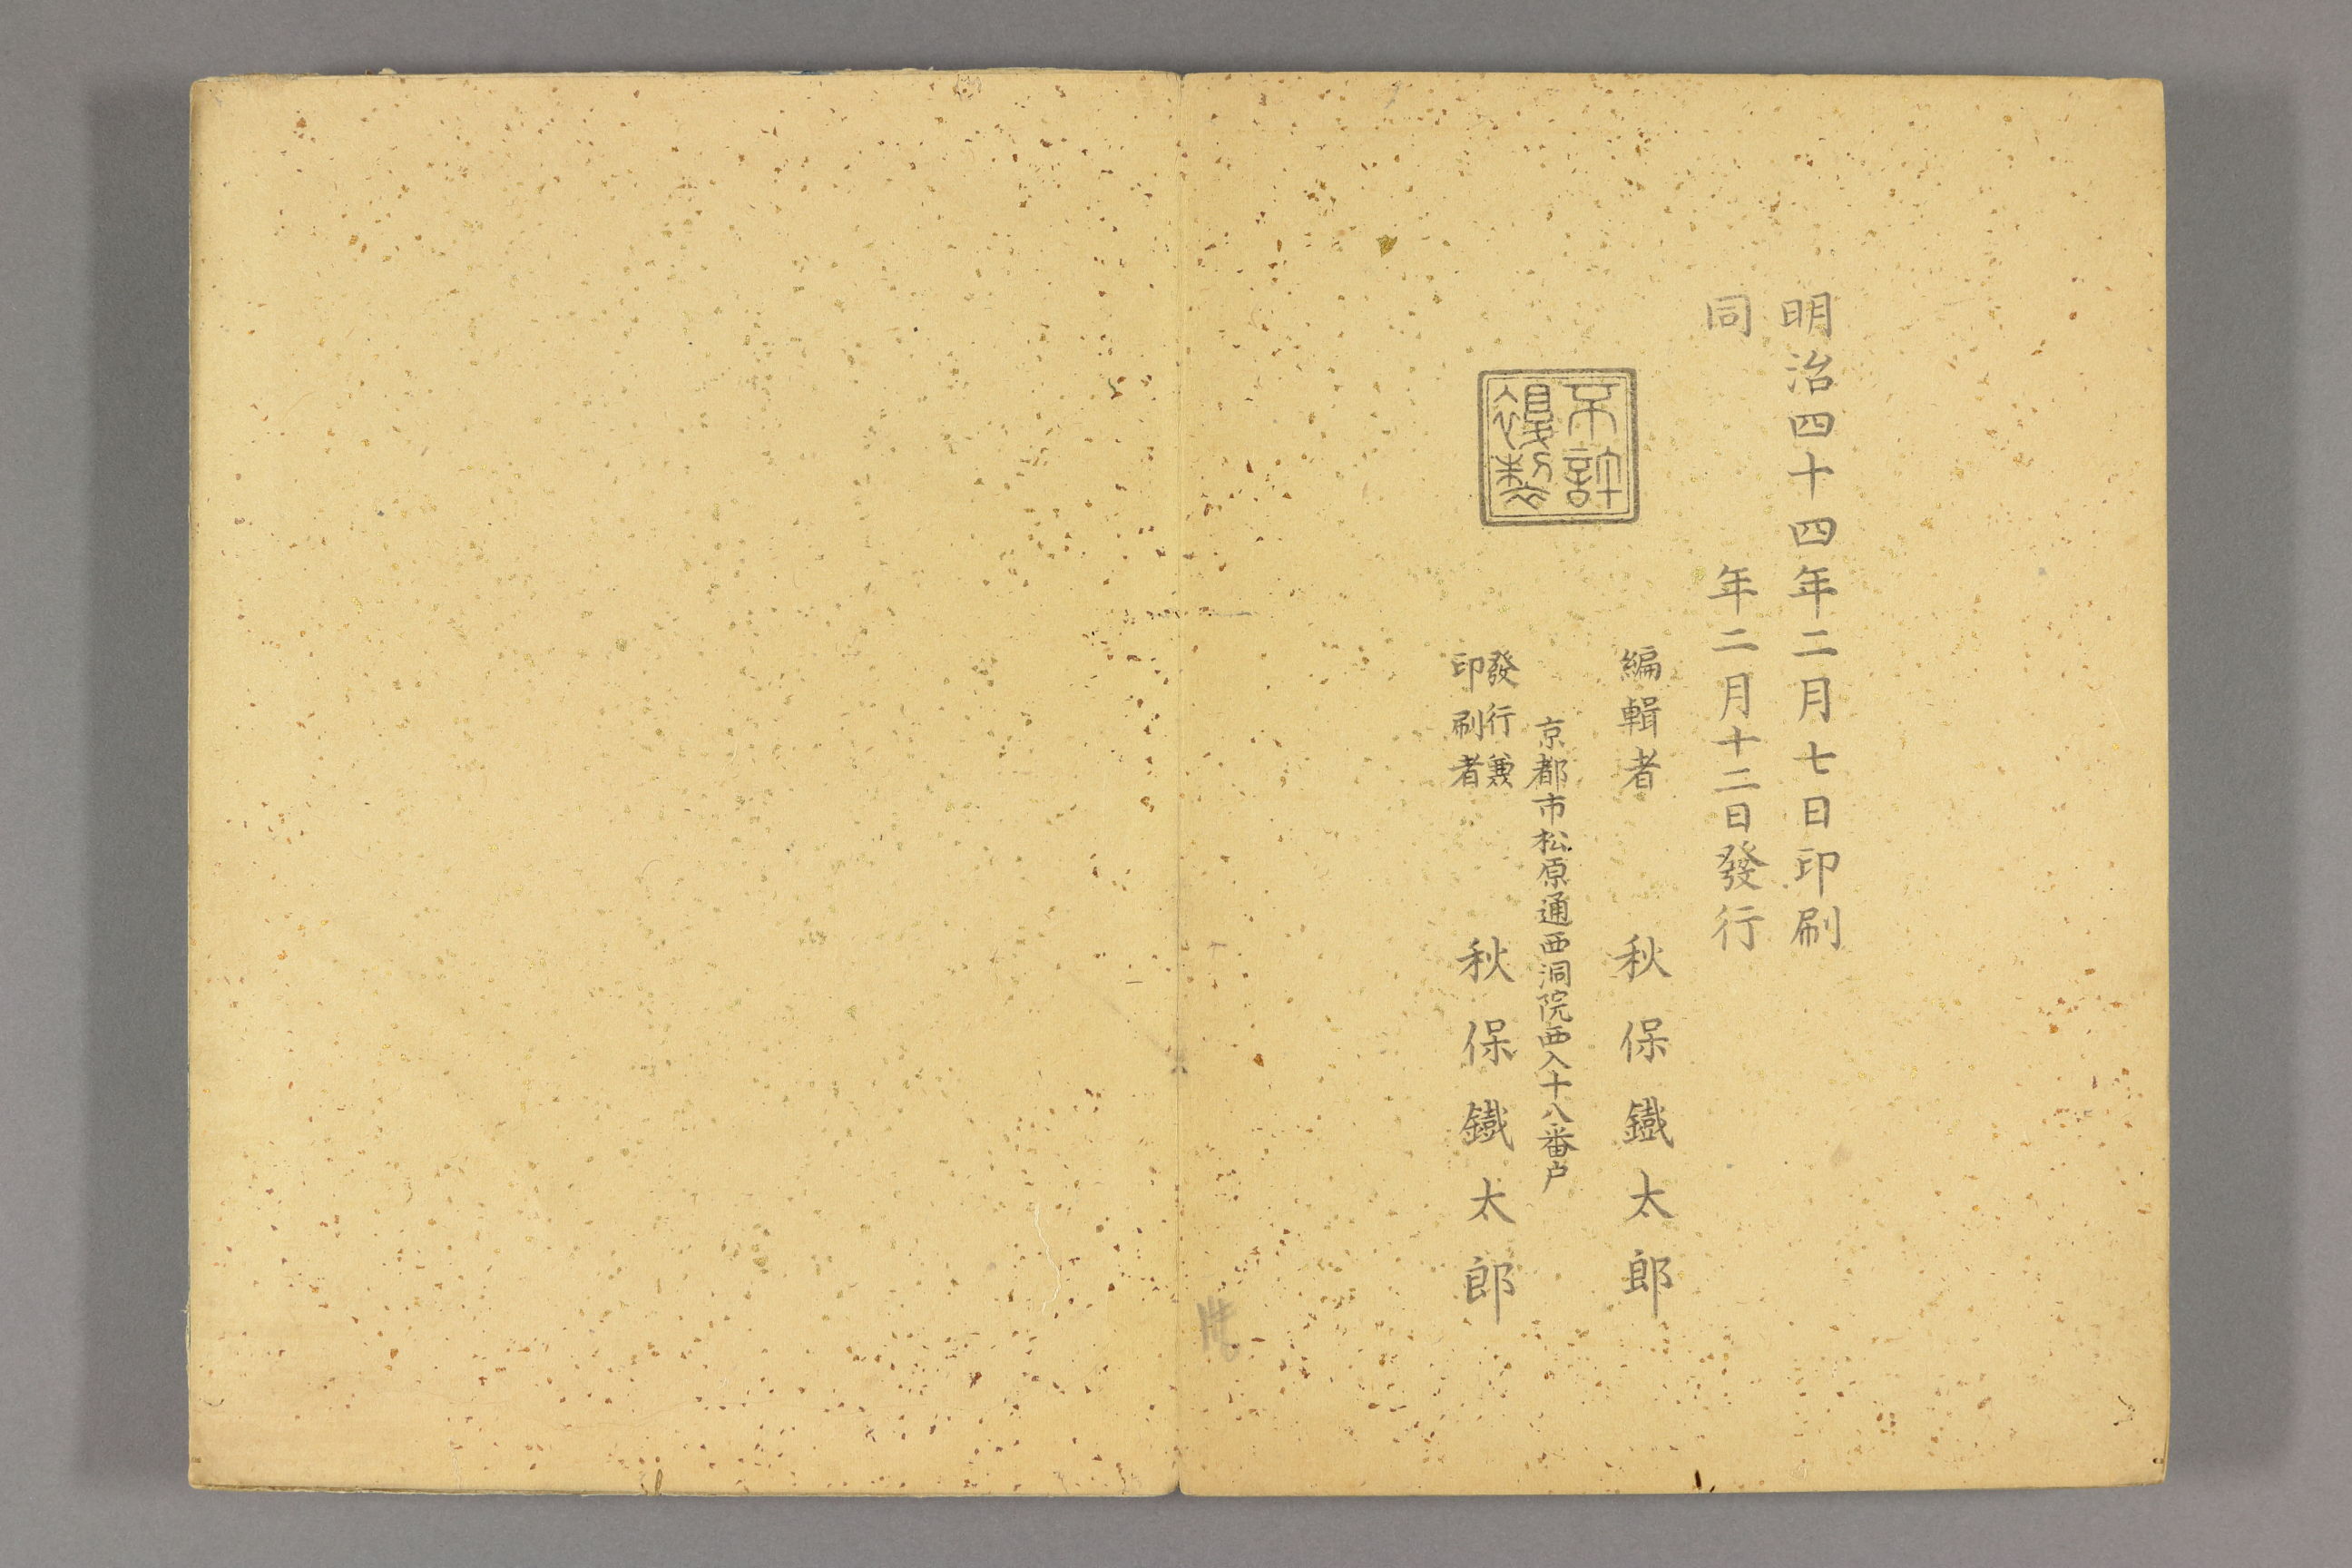 明治四十四年二月七日印刷
同　　　年二月十二日發行
不許
複製
編輯者　秋保鐵太郎
京都市松原通西洞院西入十八番戸
發行兼
印刷者　秋保鐵太郎